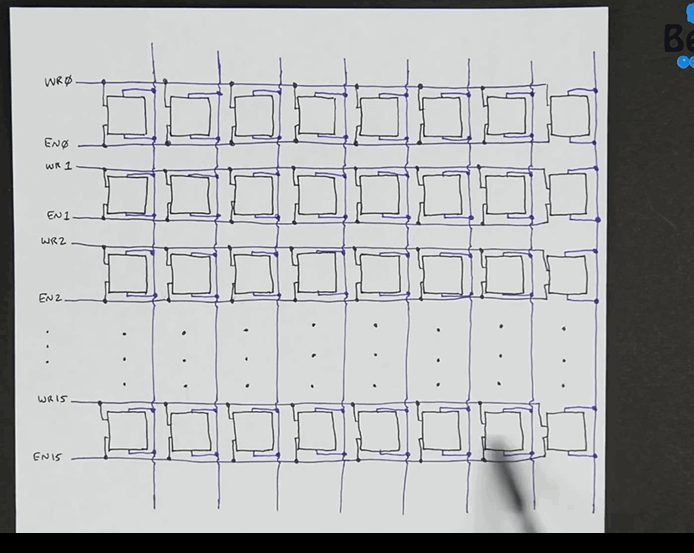 WRØ
ENØ
WR1
EN1
WR2
EN2
WR15
EN15
Be